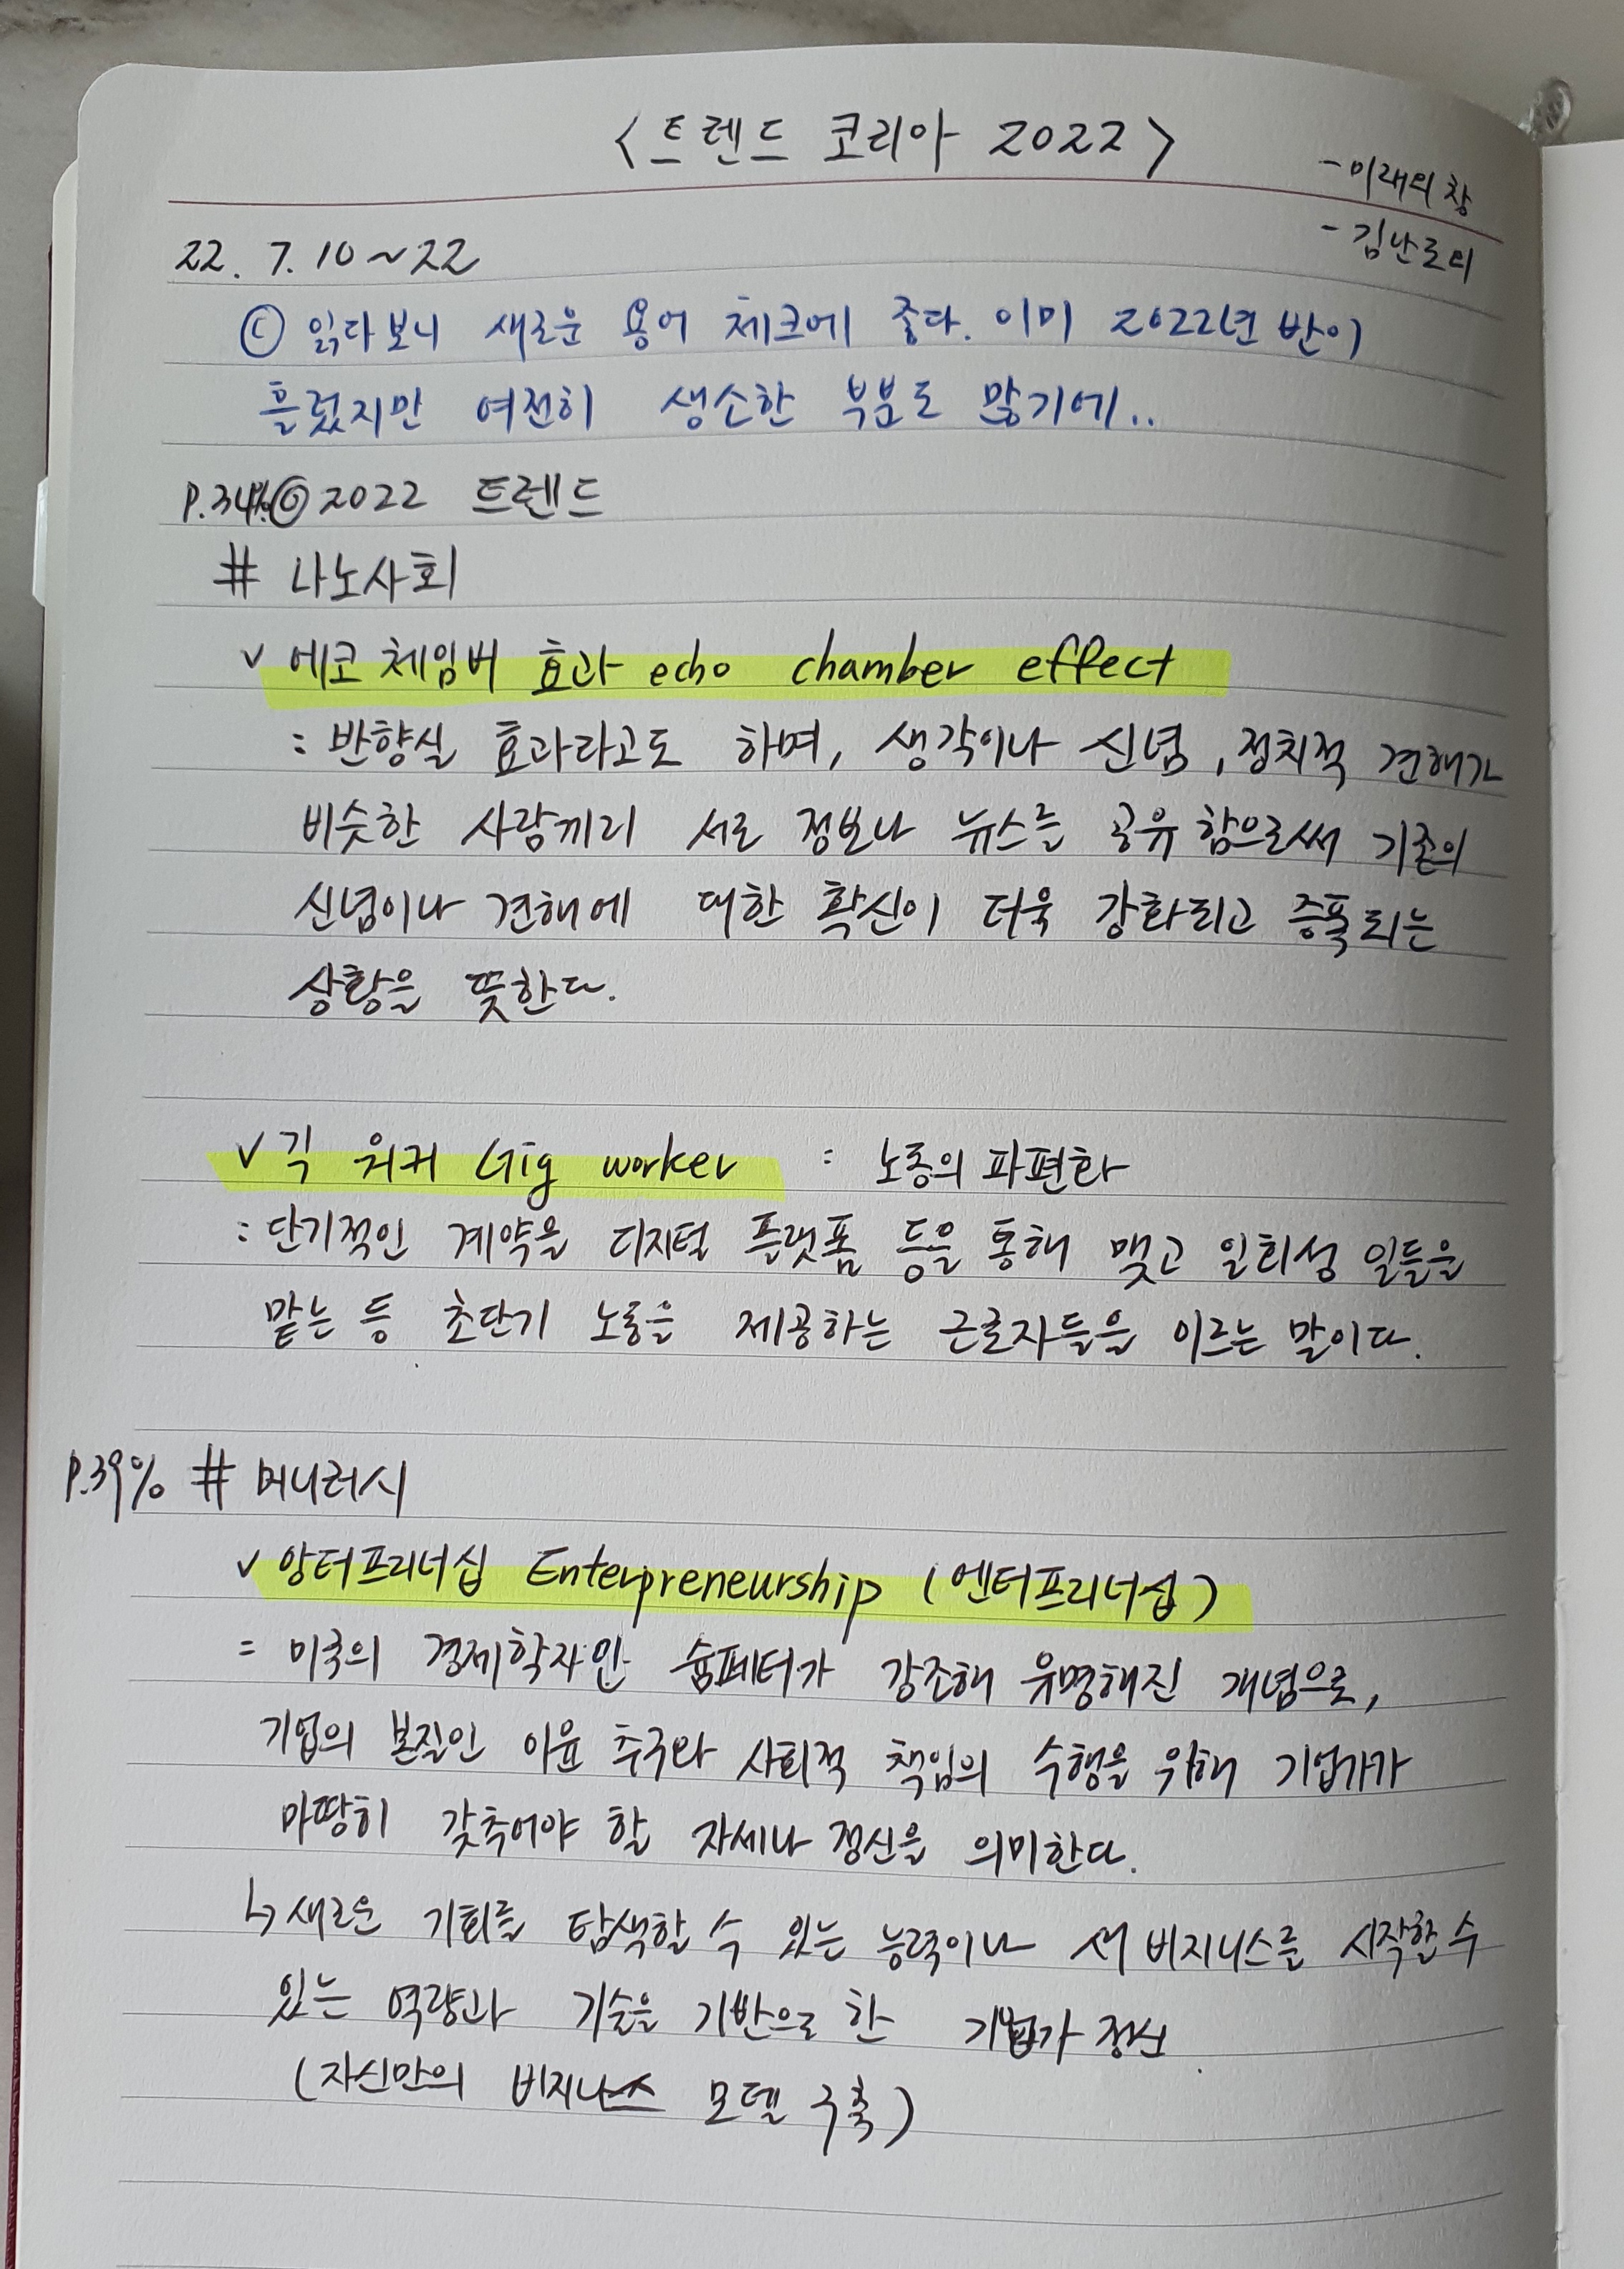 <트렌드 코리아 2022>
- 미래의 창
- 김난도외
22. 7. 10 ~ 22
ⓒ 읽다보니 새로운 용어 체크에 좋다. 이미 2022년 반이
흘렀지만 여전히 생소한 부분도 많기에..
P.34% ◎ 2022 트렌드
# 나노사회
✓ 에코 체임버 효과 echo chamber effect
: 반향실 효과라고도 하며, 생각이나 신념, 정치적 견해가
비슷한 사람끼리 서로 정보나 뉴스를 공유함으로써 기존의
신념이나 견해에 대한 확신이 더욱 강화되고 증폭되는
상황을 뜻한다.
✓ 긱 워커 Gig worker : 노동의 파편화
: 단기적인 계약을 디지털 플랫폼 등을 통해 맺고 일회성 일들을
맡는 등 초단기 노동을 제공하는 근로자들을 이르는 말이다.
P.39% # 머니러시
✓ 앙터프리너십 Enterpreneurship (엔터프리너십)
= 미국의 경제학자인 슘페터가 강조해 유명해진 개념으로,
기업의 본질인 이윤 추구와 사회적 책임의 수행을 위해 기업가가
마땅히 갖추어야 할 자세나 정신을 의미한다.
↳ 새로운 기회를 탐색할 수 있는 능력이나 새 비지니스를 시작할 수
있는 역량과 기술을 기반으로 한 기업가 정신
(자신만의 비지니스 모델 구축)